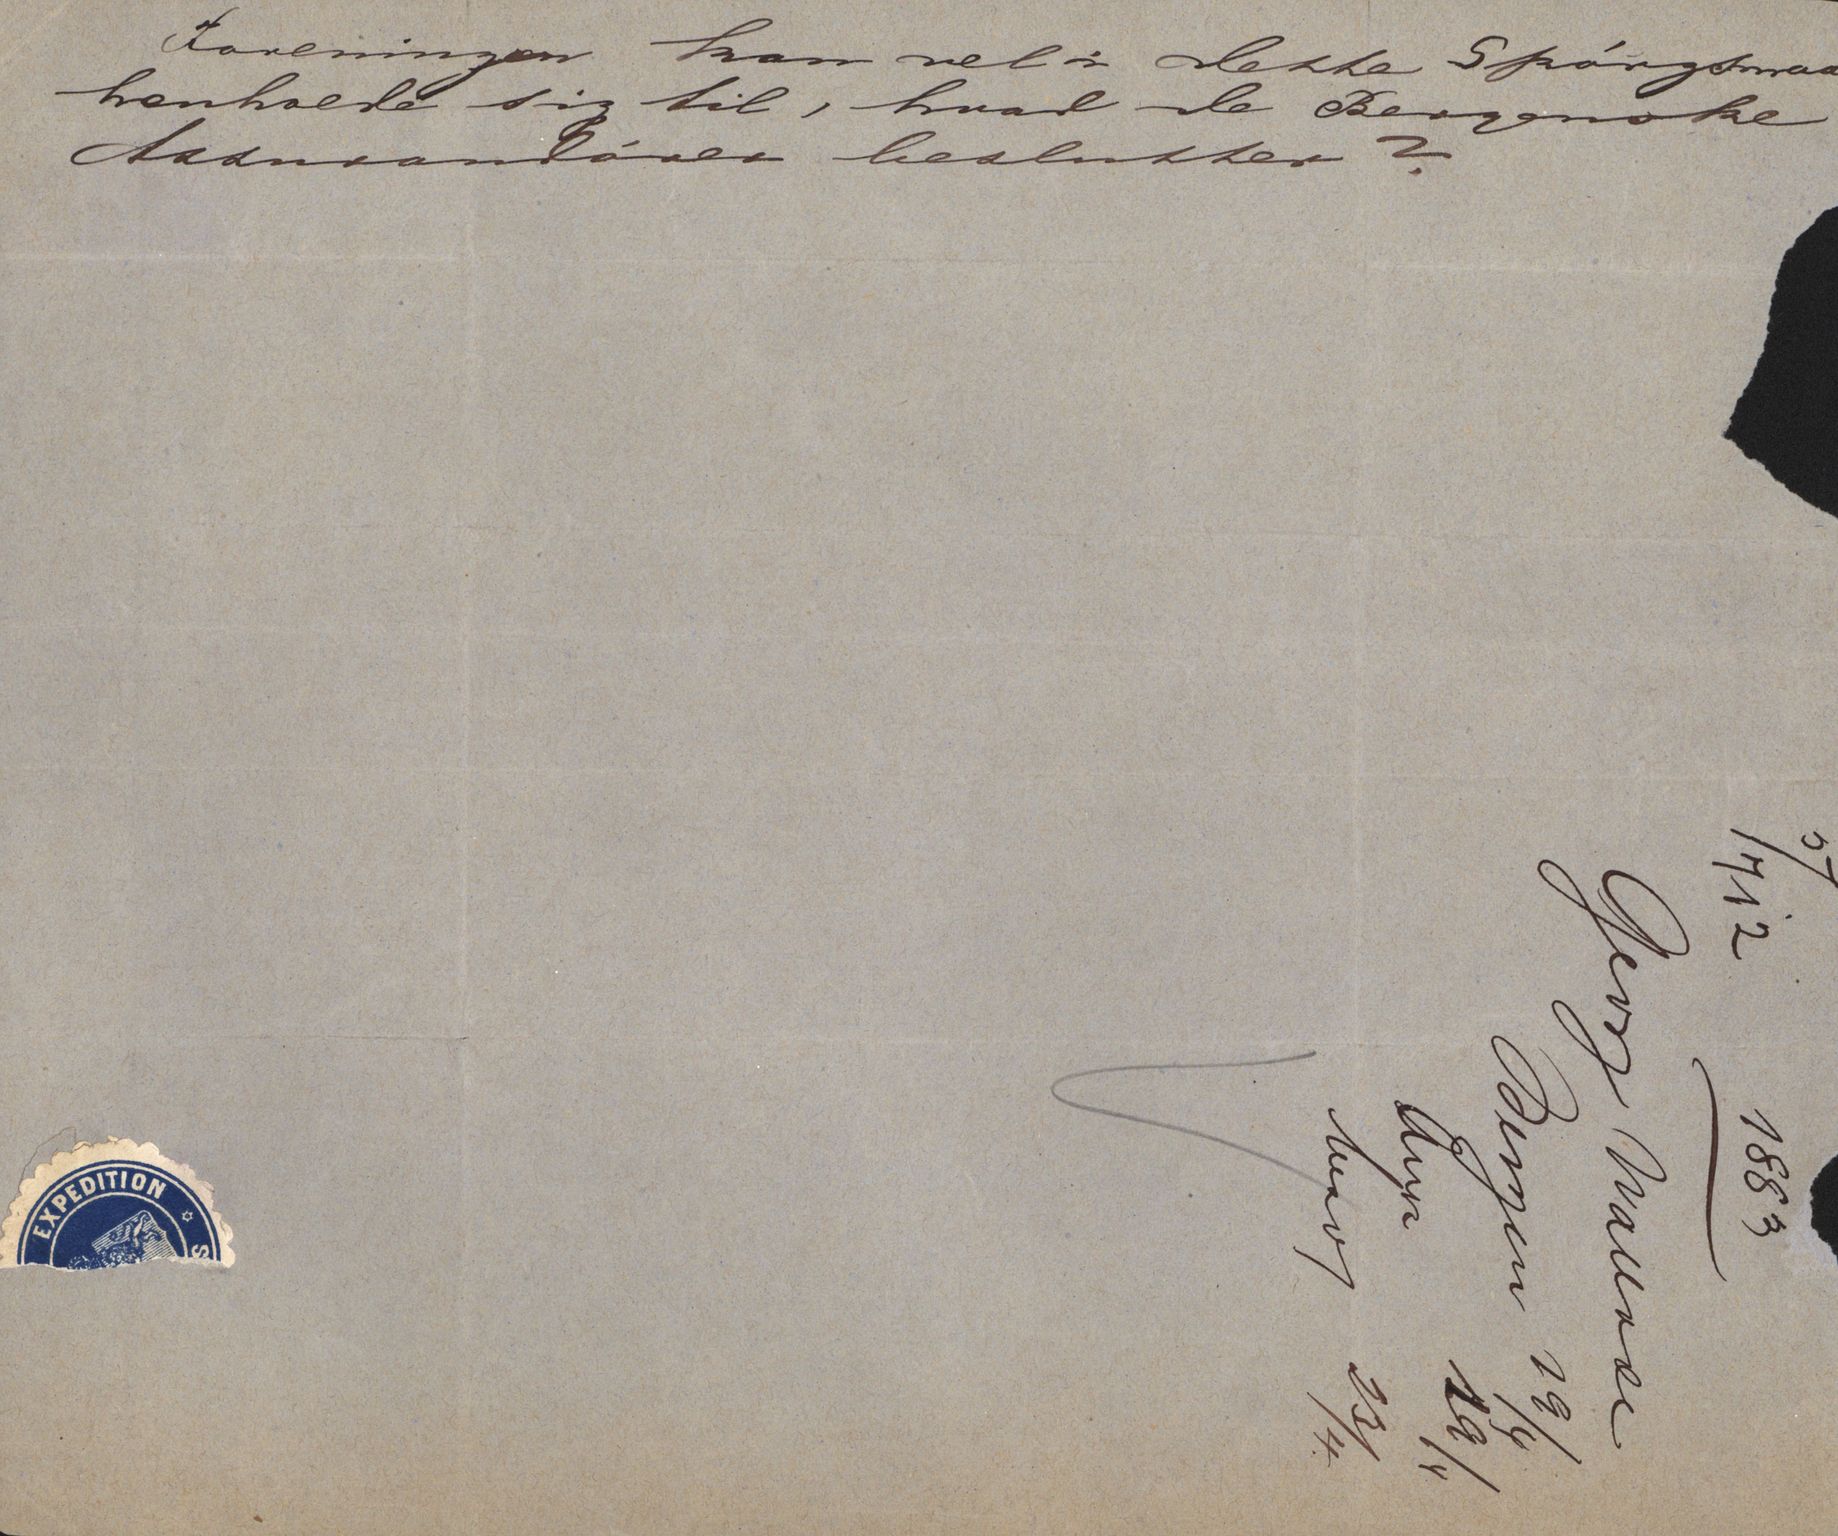 Foreningen kan vel i dette Spórgsmaa
henholde sig til, hvad de Bergenske
Assurandórer beslutter?
57
1712 1883
Georg Wallace
Bergen 19/4
19/4
Svar 23/4
EXPEDITION
S